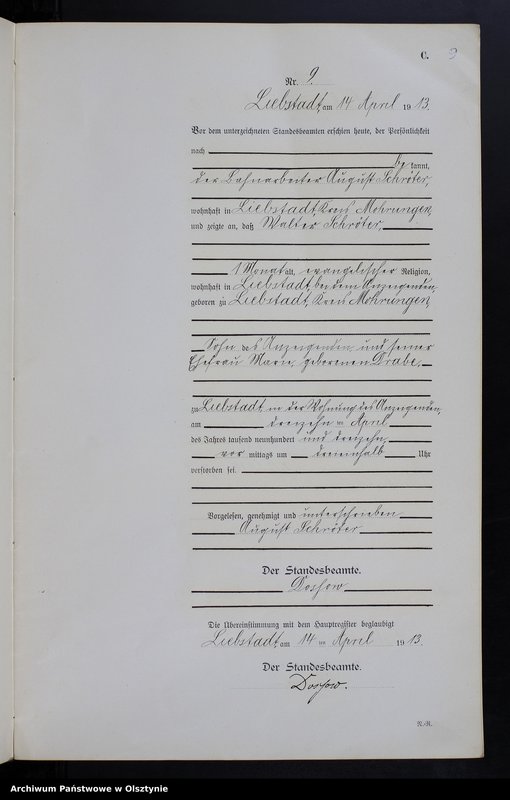 C. 9
Nr. 9.
Liebstadt, am 14 April 1913.
Vor dem unterzeichneten Standesbeamten erschien heute, der Persönlichkeit
nach
be kannt,
der Bahnarbeiter August Schröter,
wohnhaft in Liebstadt, Kreis Mohrungen,
und zeigte an, daß Walter Schröter,
1 Monat alt, evangelischer Religion,
wohnhaft in Liebstadt, bei dem Anzeigenden,
geboren zu Liebstadt, Kreis Mohrungen,
Sohn des Anzeigenden und seiner
Ehefrau Marie, geborenen Drabe,
zu Liebstadt, in der Wohnung des Anzeigenden,
am dreizehnten April
des Jahres tausend neunhundert und dreizehn,
vor mittags um dreieinhalb Uhr
verstorben sei.
Vorgelesen, genehmigt und unterschrieben
August Schröter
Der Standesbeamte.
Die Übereinstimmung mit dem Hauptregister beglaubigt
Liebstadt, am 14 ten April 1913.
Der Standesbeamte.
N.-R.
Archiwum Państwowe w Olsztynie